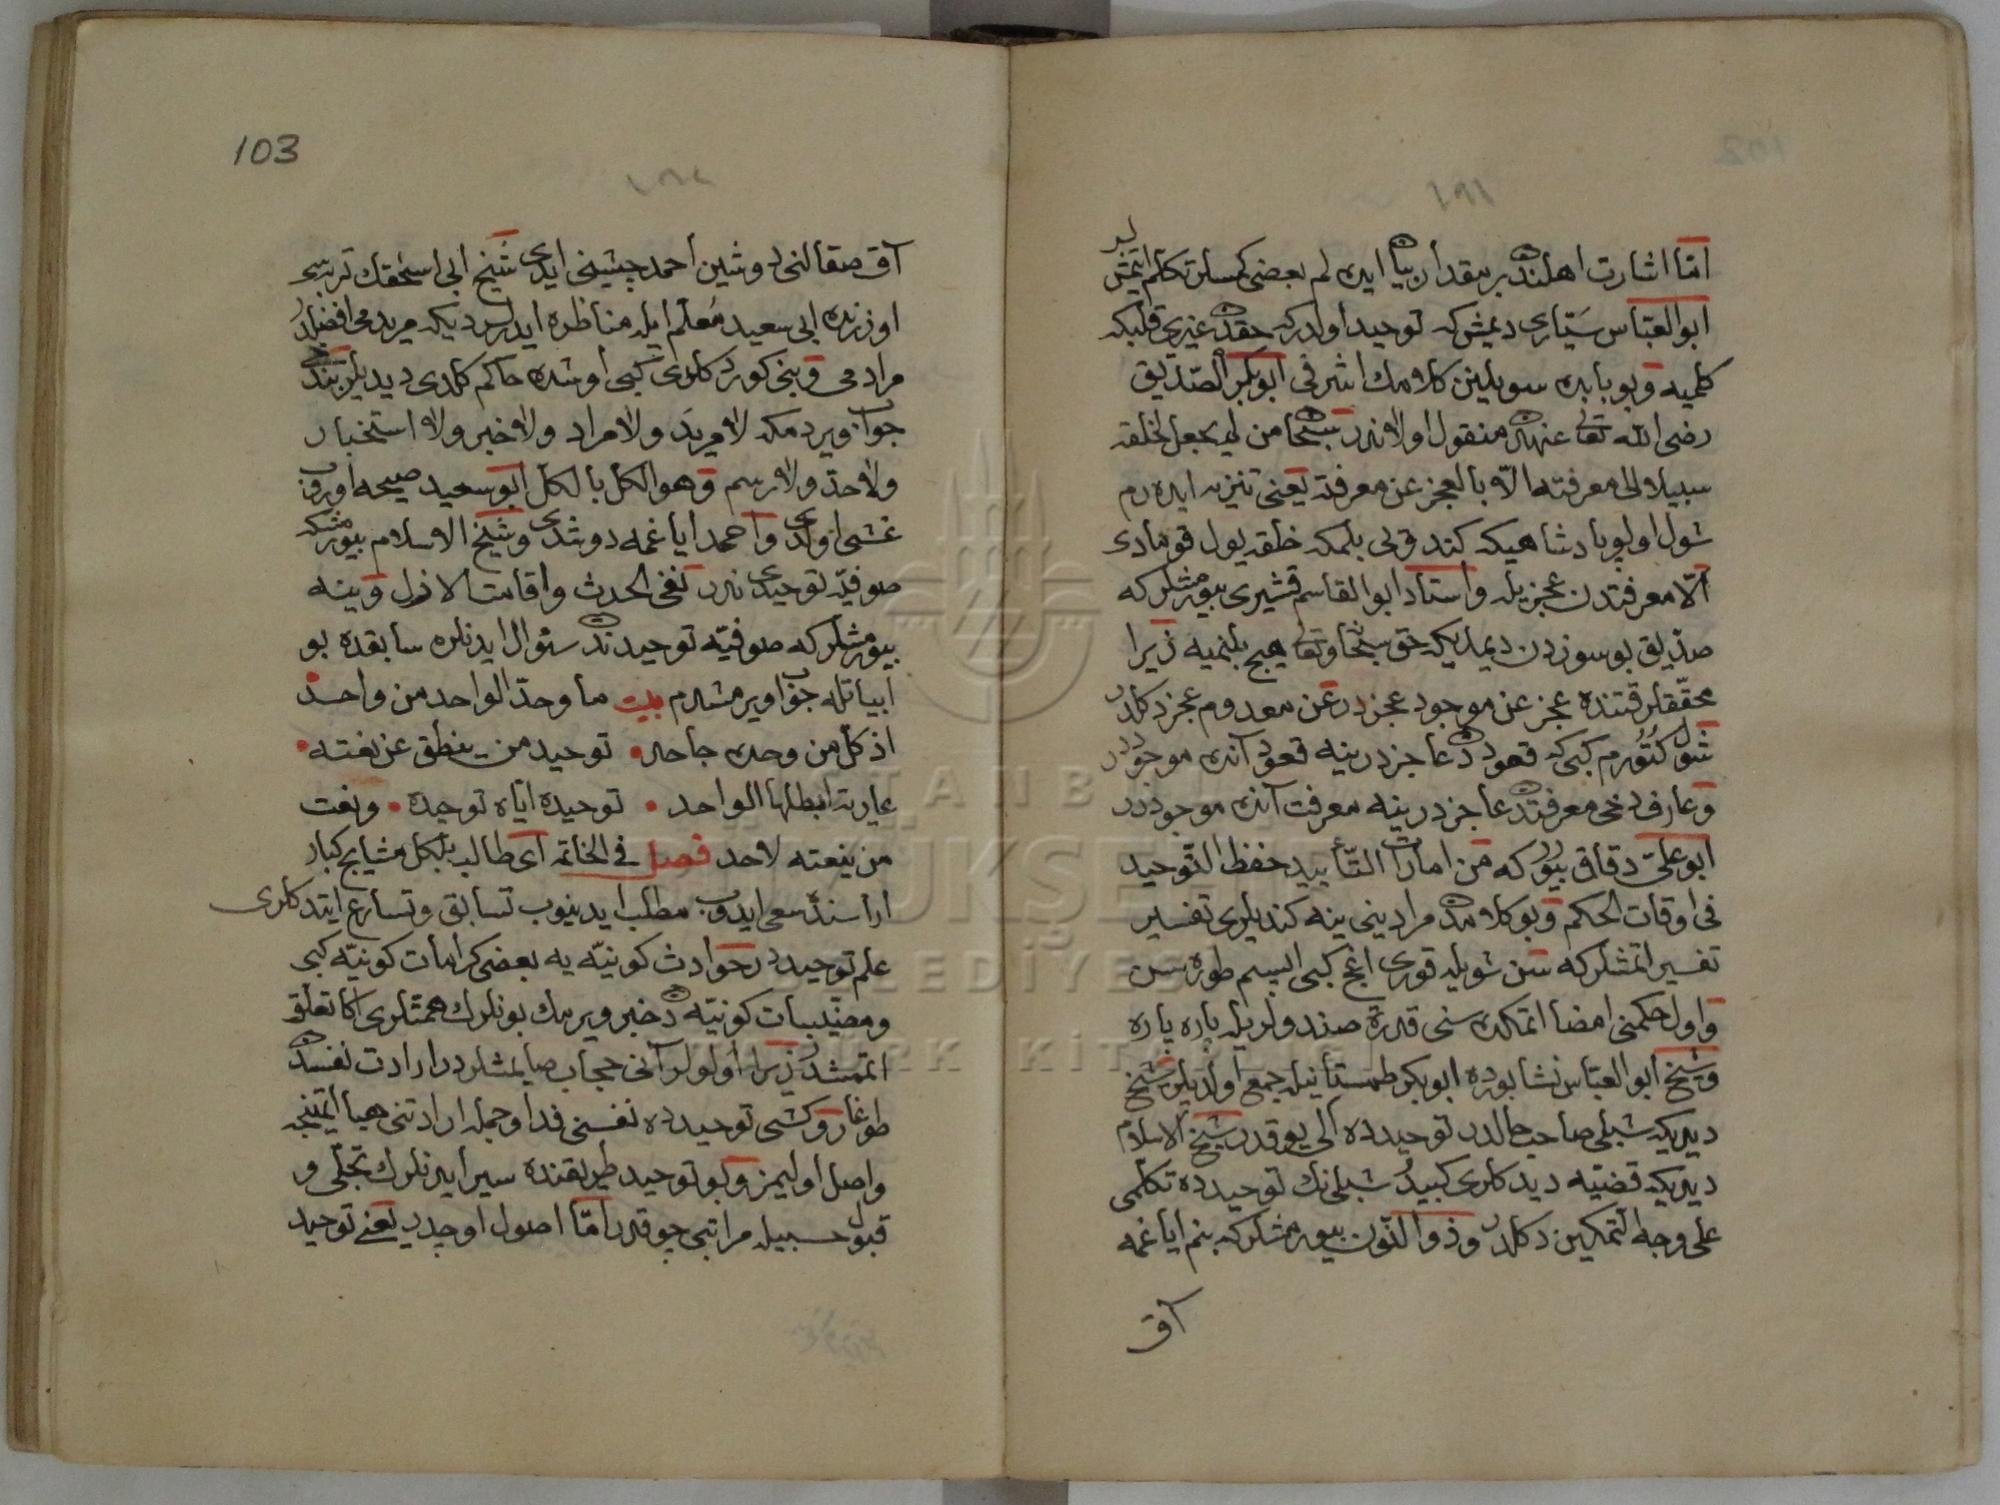 امّا اشارت اهلندن بر مقدار بیان ایده لم بعضی کمسلر تکلم اتمش لر
ابو العبّاس سیّاری دیمش که توحید اولدر که حقدن غیری قلبکه
کلمیه و بو بابده سویلینن کلامك اشرفی ابو بکر الصّدّیق
رضی الله تعالی عنهدن منقول اولاندر سبحان من لم یجعل لخلقه
سبیلا الی معرفته الّا بالعجز عن معرفته یعنی تنزیه ایده رم
شول اولو پادشاهی که کندو یی بلمکه خلقه یول قومادی
الّا معرفتدن عجز یله و استاد ابو القاسم قشیری بیورمشلر که
صدّیق بو سوزدن دیمدی که حق سبحانه و تعالی هیچ بلنمیه زیرا
محقّقلر قتنده عجز عن موجود عجزدر عن معدوم عجز دکلدر
شول کتورم کبی که قعوددن عاجزدر ینه قعود آنده موجوددر
و عارف دخی معرفتدن عاجزدر ینه معرفت آنده موجوددر
ابو علیّ دقاق بیورر که من امارات التّأیید حفظ التّوحید
فی اوقات الحکم و بو کلامدن مرادینی ینه کندیلری تفسیر
تفسیر اتمشلر که سن شویله قوری اغج کبی ایسم طوره سن
و اول حکمنی امضا اتمکده سنی قدرة صندولریله پاره پاره
و شیخ ابو العبّاس نشابورده ابو بکر طمستانیله جمع اولدیلر شیخ
دیدی که شبلی صاحب حالدر توحیدده الی یوقدر شیخ الاسلام
دیدی که قضیّه دیدکلری کبیدر شبلی نك توحیدده تکلّمی
علی وجه التّمکین دکلدر و ذو النّون بیورمشلر که بنم ایاغمه
آق
103
آق صقالنی دوشین احمد چشینی ایدی شیخ ابی اسحقك تربه سی
اوزرنده ابی سعید مُعلّم ایله مناظره ایدرلردی که مرید می افضلدر
مراد می و بنی کوردکلری کبی اوشده حاکم کلدی دیدیلر بندخی
جواب ویردم که لا مرید و لا مراد و لا خبر و لا استخبار
و لا حدّ و لا رسم و هو الکل بالکل ابو سعید صیحه اوروب
غشی اولدی و احمد ایاغمه دوشدی و شیخ الاسلام بیورمش که
صوفیّه توحیدی ندر نفی الحدث و اقامت الازل و ینه
بیورمشلر که صوفیّه توحیدندن سؤال ایدنلره سابقده بو
ابیاتله جواب ویرمشدرم بیت ما وحدّ الواحد من واحد
اذ کل من وحده جاحد • توحید من ینطق عن نعته •
عاریة ابطلها الواحد • توحیده ایّاه توحیده • و نعت
من ینعته لاحد فصل فی الخاتمه ای طالب بلکل مشایخ کبار
اراسنده سعی ایدوب مطلب ایدینوب تسابق و تسارع ایتدکلری
علم توحیددر حوادث کونیّه یه بعضی کرامات کونیّه کبی
و مغیّبات کونیّه دن خبر ویرمك بونلرك همّتلری اکا تعلّق
اتممشدر زیرا اولولر آنی حجاب صایمشلردر ارادت نفسدن
طوغار و کشی توحیدده نفسنی فدا و جمله ارادتنی هبا ایتمینجه
واصل اولیمز و بو توحید طریقنده سیر ایدنلرك تجلّی و
قبول حسبیله مراتبی چوقدر امّا اصول اوچدر یعنی توحید